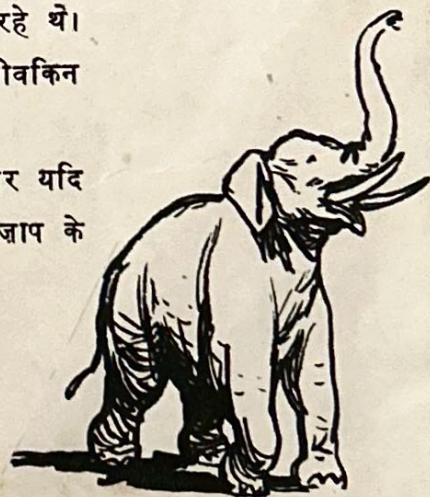 रहे थे।
ोवकिन
र यदि
ज़ाप के